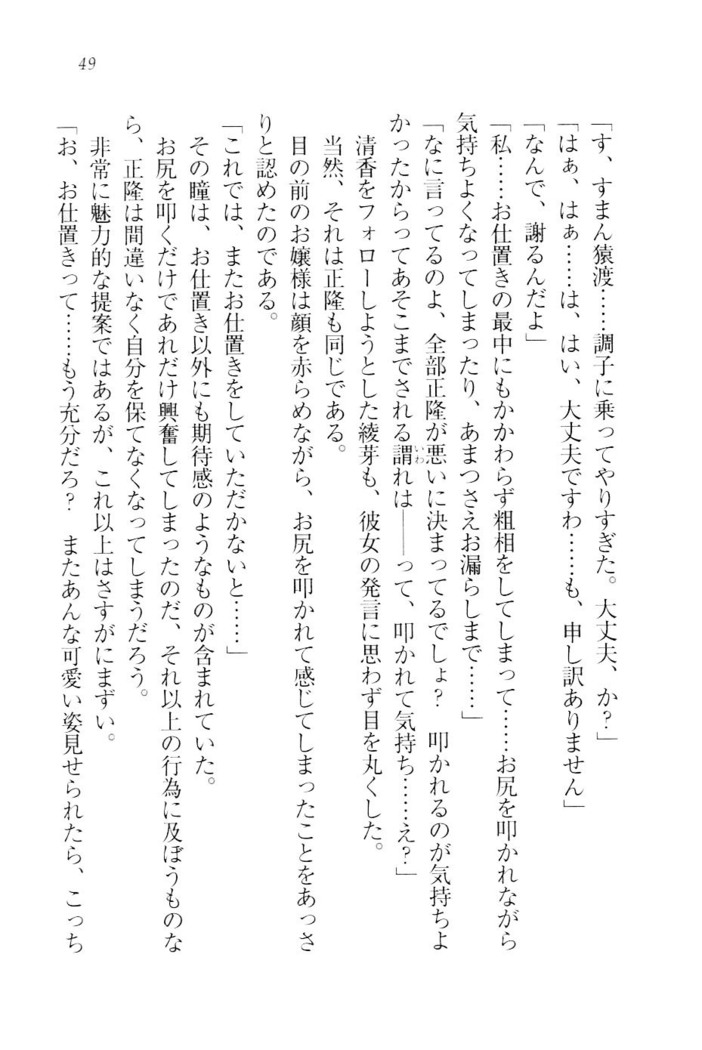 49
「す、すまん猿渡……調子に乗ってやりすぎた。大丈夫、か？」
「はぁ、はぁ……は、はい、大丈夫ですわ……も、申し訳ありません」
「なんで、謝るんだよ」
「私……お仕置きの最中にもかかわらず粗相をしてしまって……お尻を叩かれながら
気持ちよくなってしまったり、あまつさえお漏らしまで……」
「なに言ってるのよ、全部正隆が悪いに決まってるでしょ？　叩かれるのが気持ちよ
かったからってあそこまでされる謂れは――って、叩かれて気持ち……え？」
清香をフォローしようとした綾芽も、彼女の発言に思わず目を丸くした。
当然、それは正隆も同じである。
目の前のお嬢様は顔を赤らめながら、お尻を叩かれて感じてしまったことをあっさ
りと認めたのである。
「これでは、またお仕置きをしていただかないと……」
その瞳は、お仕置き以外にも期待感のようなものが含まれていた。
お尻を叩くだけであれだけ興奮してしまったのだ、それ以上の行為に及ぼうものな
ら、正隆は間違いなく自分を保てなくなってしまうだろう。
非常に魅力的な提案ではあるが、これ以上はさすがにまずい。
「お、お仕置きって……もう充分だろ？　またあんな可愛い姿見せられたら、こっち